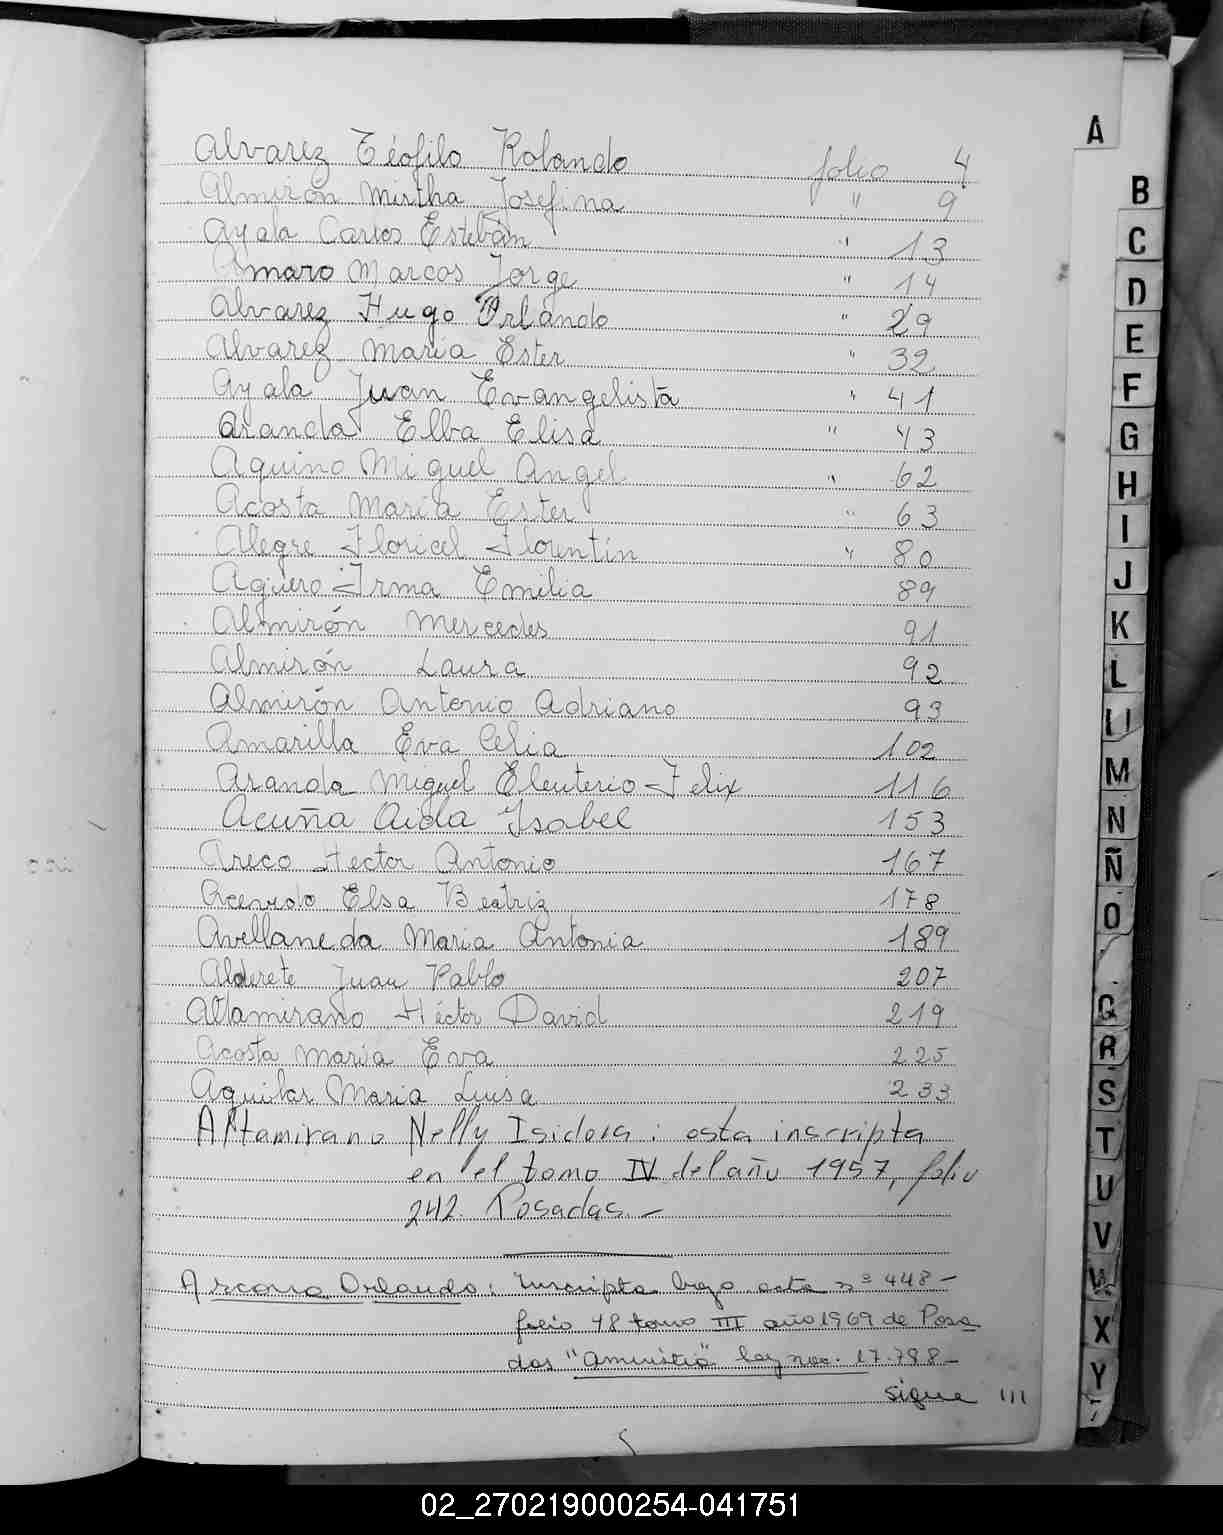 Alvarez Teófilo Rolando folio 4
Almirón Mirtha Josefina " 9
Ayala Carlos Esteban " 13
Amaro Marcos Jorge " 14
Alvarez Hugo Orlando " 29
Alvarez Maria Ester " 32
Ayala Juan Evangelista " 41
Aranda Elba Elisa " 43
Aquino Miguel Angel " 62
Acosta María Ester " 63
Alegre Floricel Florentín " 80
Agüero Irma Emilia 89
Almirón Mercedes 91
Almirón Laura 92
Almirón Antonio Adriano 93
Amarilla Eva Celia 102
Aranda Miguel Eleuterio-Felix 116
Acuña Aida Ysabel 153
Areco Hector Antonio 167
Acevedo Elsa Beatriz 178
Avellaneda Maria Antonia 189
Alderete Juan Pablo 207
Altamirano Héctor David 219
Acosta María Eva 225
Aguilar Maria Luisa 233
Altamirano Nelly Isidora: esta inscripta
en el tomo IV del año 1957, folio
242. Posadas.-
Ascona Orlando: Inscripta bajo acta nº 448-
folio 48 tomo III año 1969 de Posa
das "amnistia" ley nac. 17.798-
sigue III
A
B
C
D
E
F
G
H
I
J
K
L
Ll
M
N
Ñ
O
Q
R
S
T
U
V
W
X
Y
02_270219000254-041751